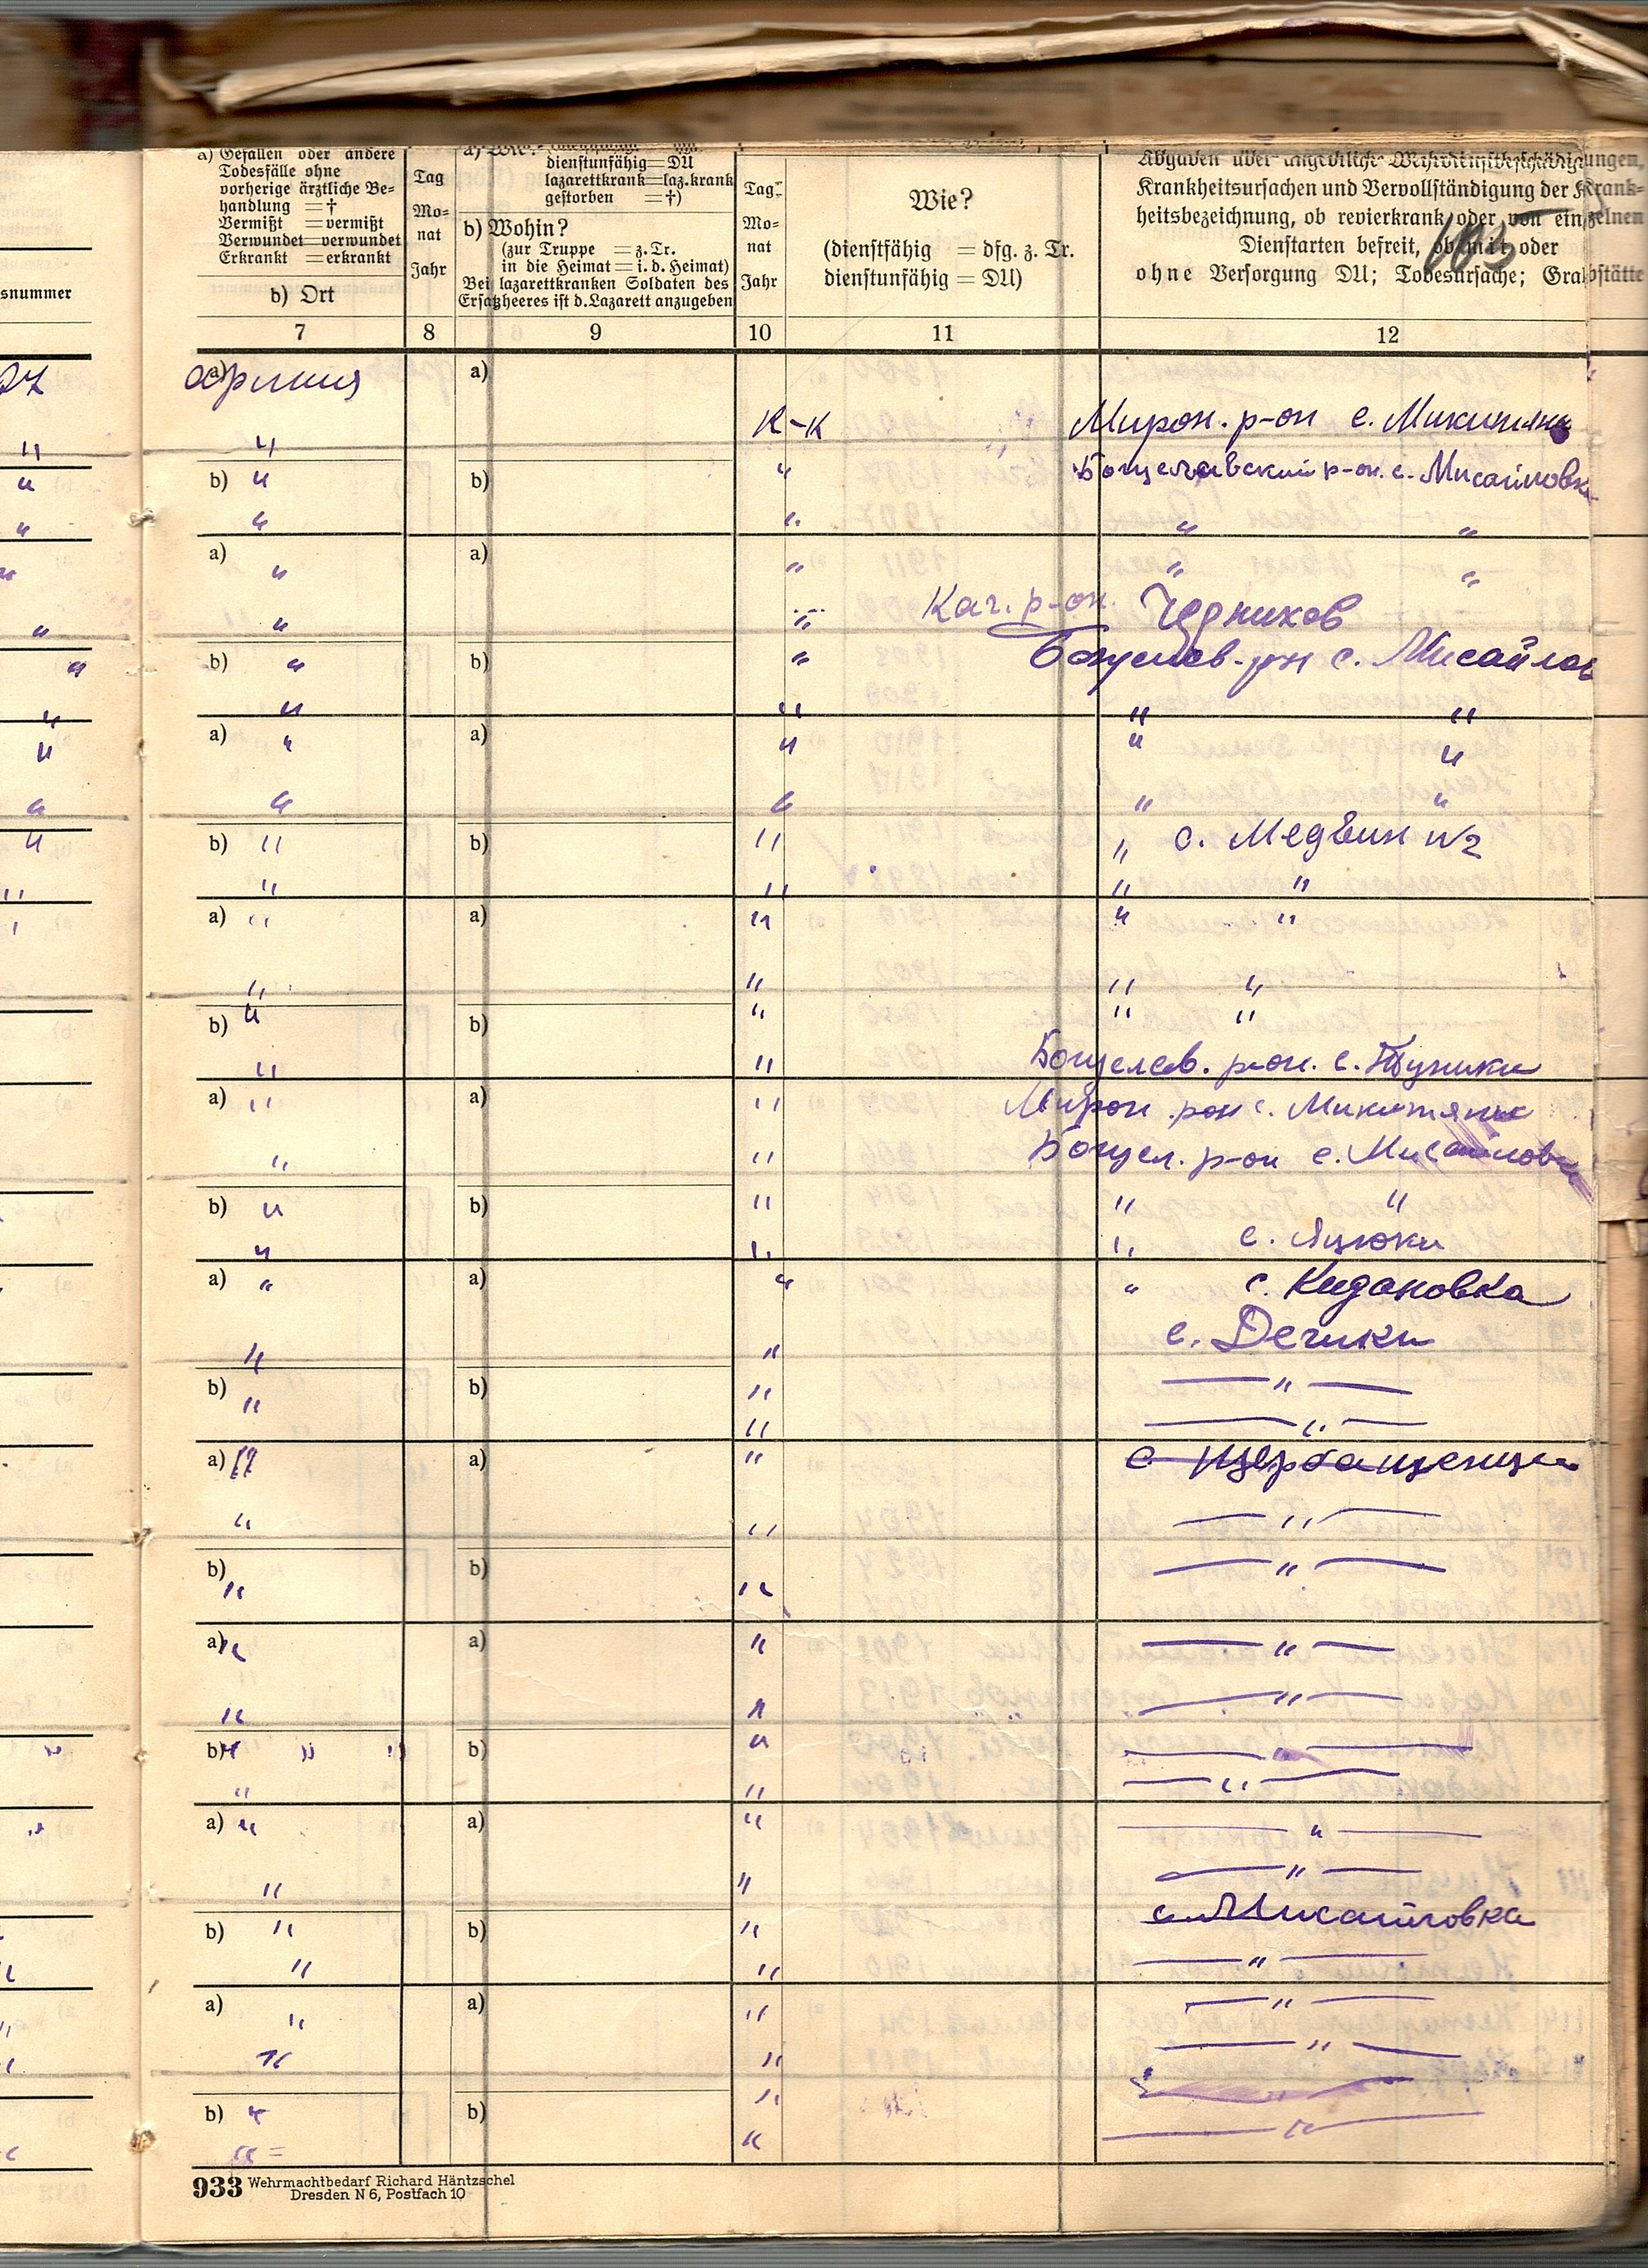 a) Gefallen oder andere
Todesfälle ohne
vorherige ärztliche Be-
handlung =†
Vermißt =vermißt
Verwundet=verwundet
Erkrankt =erkrankt
b) Ort
snummer
Tag
Mo-
nat
Jahr
dienstunfähig=DU
lazarettkrank=laz.krank
gestorben =†)
b) Wohin?
(zur Truppe = z. Tr.
in die Heimat = i. d. Heimat)
Bei lazarettkranken Soldaten des
Ersatzheeres ist d. Lazarett anzugeben
Tag-
Mo-
nat
Jahr
Wie?
(dienstfähig = dfg. z. Tr.
dienstunfähig = DU)
Krankheitsursachen und Vervollständigung der Krank-
heitsbezeichnung, ob revierkrank oder von einzelnen
Dienstarten befreit, ob mit oder
ohne Versorgung DU; Todesursache; Grabstätte
7 8 9 10 11 12
a) армия a)
" К-К Мирон. р-он с. Микитяны
b) " b) " Богуславский р-он. с. Мисайловк
" " " "
a) " a) " " "
" " Каг. р-он.
b) " b) " Богуслав. р-н с. Мисайлов
" " " "
a) " a) " " "
" " " "
b) " b) " " с. Медвин №2
" " " "
a) " a) " " "
" " " "
b) " b) " " "
" " Богуслав. р-он. с. Туники
a) " a) " Мирон. р-он с. Микитяны
" " Богусл. р-он с. Мисайловк
b) " b) " " "
" " " с. Яцюки
a) " a) " " с. Кидановка
" " с. Дечики
b) " b) " — " —
" " — " —
a) " a) " с Щербашенци
" " — " —
b) " b) " — " —
a) " a) " — " —
" " — " —
b) " " " b) " — " —
" " — " —
a) " a) " — " —
" " — " —
b) " b) " с. Мисайловка
" " — " —
a) " a) " — " —
" " — " —
b) " b) " — " —
" = " — " —
933 Wehrmachtbedarf Richard Häntzschel
Dresden N 6, Postfach 10